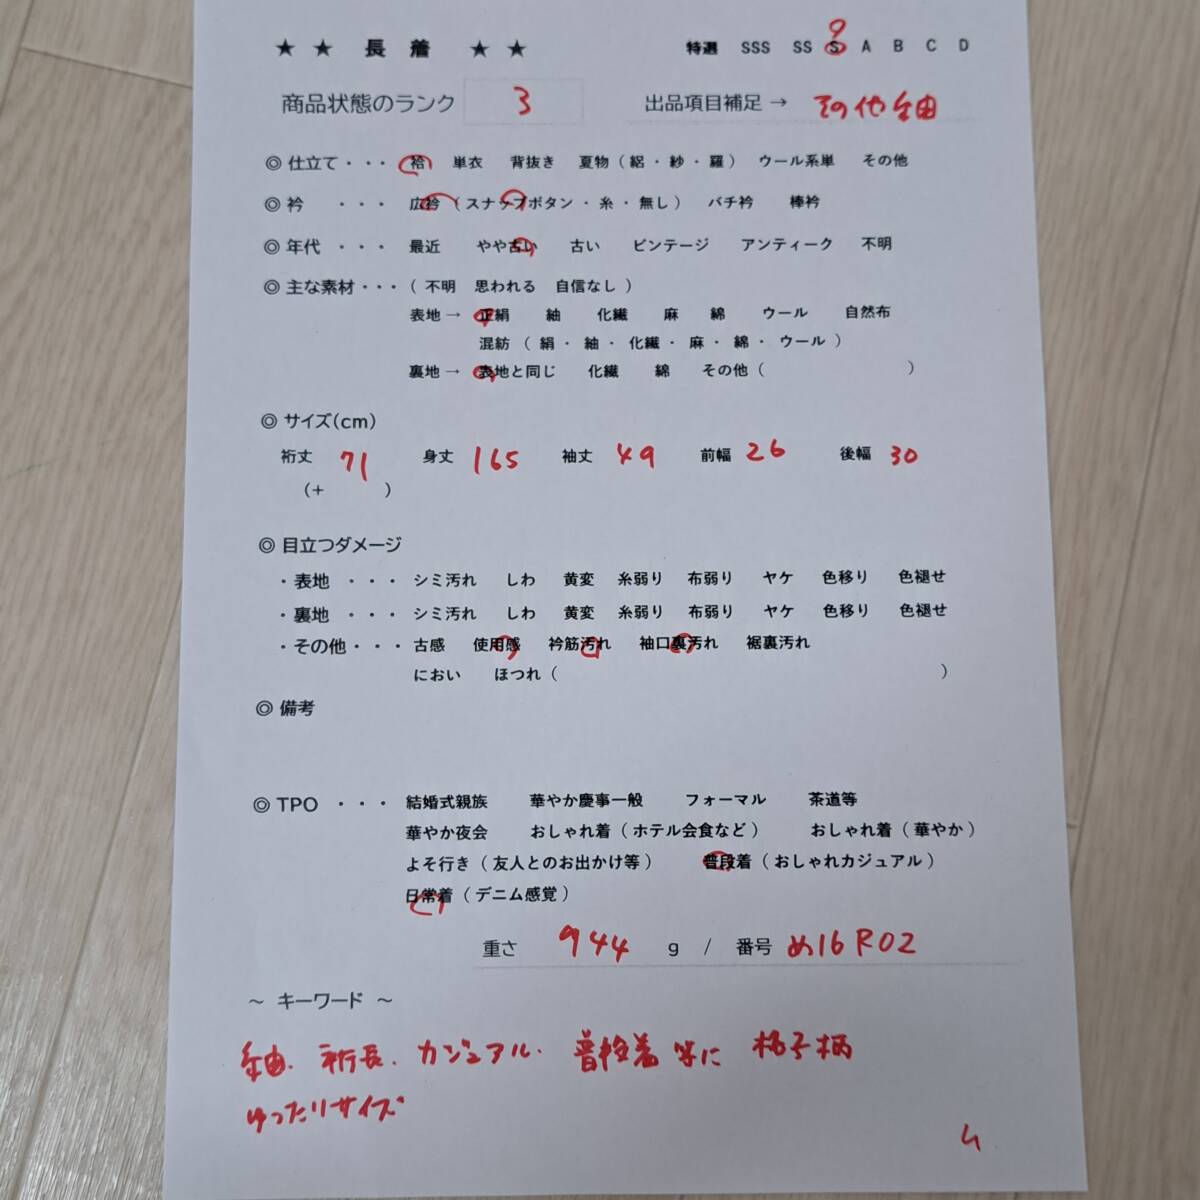 ★ ★ 長 着 ★ ★ 特選 SSS SS S A B C D
商品状態のランク 3 出品項目補足 → その他紬
◎ 仕立て ・・・ 袷 単衣 背抜き 夏物 ( 絽 ・ 紗 ・ 羅 ) ウール系単 その他
◎ 衿 ・・・ 広衿 ( スナップボタン ・ 糸 ・ 無し ) バチ衿 棒衿
◎ 年代 ・・・ 最近 やや古い 古い ビンテージ アンティーク 不明
◎ 主な素材 ・・・ ( 不明 思われる 自信なし )
表地 → 正絹 紬 化繊 麻 綿 ウール 自然布
混紡 ( 絹 ・ 紬 ・ 化繊 ・ 麻 ・ 綿 ・ ウール )
裏地 → 表地と同じ 化繊 綿 その他 ( )
◎ サイズ(cm)
裄丈 71 身丈 165 袖丈 49 前幅 26 後幅 30
(+ )
◎ 目立つダメージ
・ 表地 ・・・ シミ汚れ しわ 黄変 糸弱り 布弱り ヤケ 色移り 色褪せ
・ 裏地 ・・・ シミ汚れ しわ 黄変 糸弱り 布弱り ヤケ 色移り 色褪せ
・ その他 ・・・ 古感 使用感 衿筋汚れ 袖口裏汚れ 裾裏汚れ
におい ほつれ ( )
◎ 備考
◎ TPO ・・・ 結婚式親族 華やか慶事一般 フォーマル 茶道等
華やか夜会 おしゃれ着 ( ホテル会食など ) おしゃれ着 ( 華やか )
よそ行き ( 友人とのお出かけ等 ) 普段着 ( おしゃれカジュアル )
日常着 ( デニム感覚 )
重さ 944 g / 番号 め16R02
～ キーワード ～
紬. 裄長. カジュアル. 普段着 等に 格子柄
ゆったりサイズ